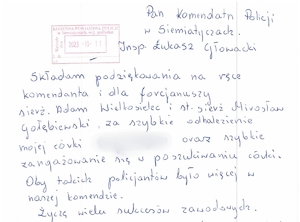 Pan Komendatn Policji
w Siemiatyczach.
Insp Łukasz Głowacki
Składam podziękowania na ręce
komendanta i dla forcjanuszy
sierż. Adam Wielkosielec i st-sierż Mirosław
Gołębiewski, za szybkie odnalezienie
mojej córki oraz szybkie
zangażowanie się w poszukiwaniu córki.
Oby takich policjantów było więcej w
naszej komendzie.
Życzę wielu sukcesów zawodowych.